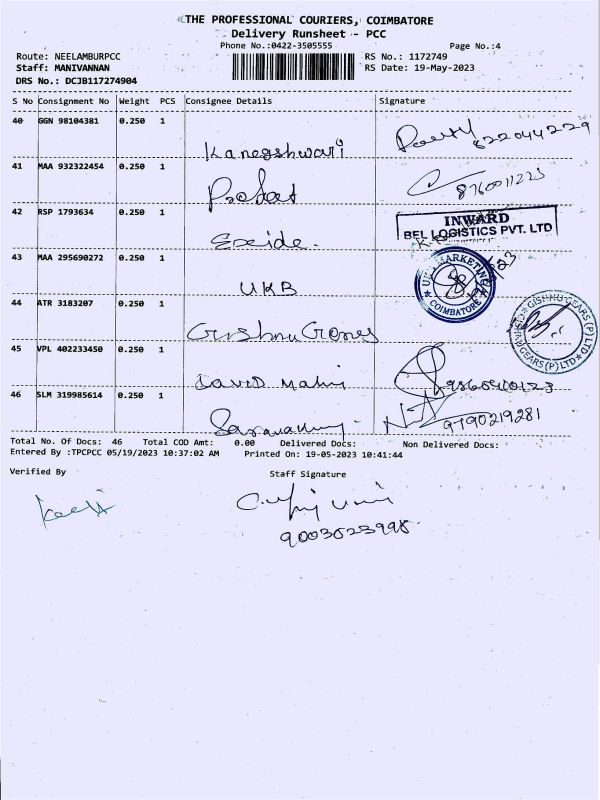 THE PROFESSIONAL COURIERS, COIMBATORE
Delivery Runsheet - PCC
Phone No.:0422-3505555 Page No.:4
Route: NEELAMBURPCC RS No.: 1172749
Staff: MANIVANNAN RS Date: 19-May-2023
DRS No.: DCJB117274904
S No Consignment No Weight PCS Consignee Details Signature
40 GGN 98104381 0.250 1
Kanegshwari
41 MAA 932322454 0.250 1
8760011223
42 RSP 1793634 0.250 1
Exide.
INWARD
BEL LOGISTICS PVT. LTD
43 MAA 295690272 0.250 1
UKB
MARKETING
COIMBATORE
44 ATR 3183207 0.250 1
GEARS (P) LTD
45 VPL 402233450 0.250 1
David
46 SLM 319985614 0.250 1
9790219281
Total No. Of Docs: 46 Total COD Amt: 0.00 Delivered Docs: Non Delivered Docs:
Entered By :TPCPCC 05/19/2023 10:37:02 AM Printed On: 19-05-2023 10:41:44
Verified By Staff Signature
9003623998